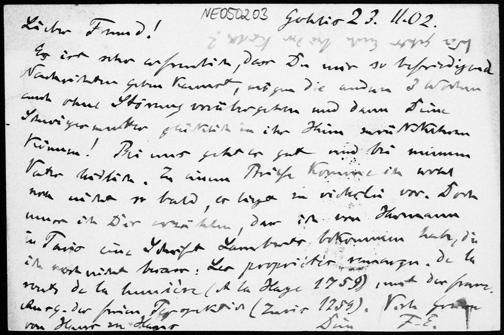 NE050203 Gohlis 23. 11. 02.
Lieber Freund!
Es ist sehr erfreulich, dass Du mir so befriedigende
Nachrichten geben kannst, mögen die andern 3 Wochen
auch ohne Störung vorübergehen und dann Deine
Schwiegermutter glücklich in ihr Heim zurückkehren
können! Bei uns geht es gut und bei meinem
Vater leidlich. Zu einem Briefe komme ich wohl
noch nicht so bald, es liegt zu vielerlei vor. Doch
muss ich Dir erzählen, dass ich von Hermann
in Paris eine Schrift Lamberts bekommen habe, die
ich noch nicht besass: Les propriétés remarqu. de la
route de la lumière (A la Haye 1759), und
der freien Perspektive (Zürich 1759). Viele Grüsse
von Haus zu Haus Dein F. E.